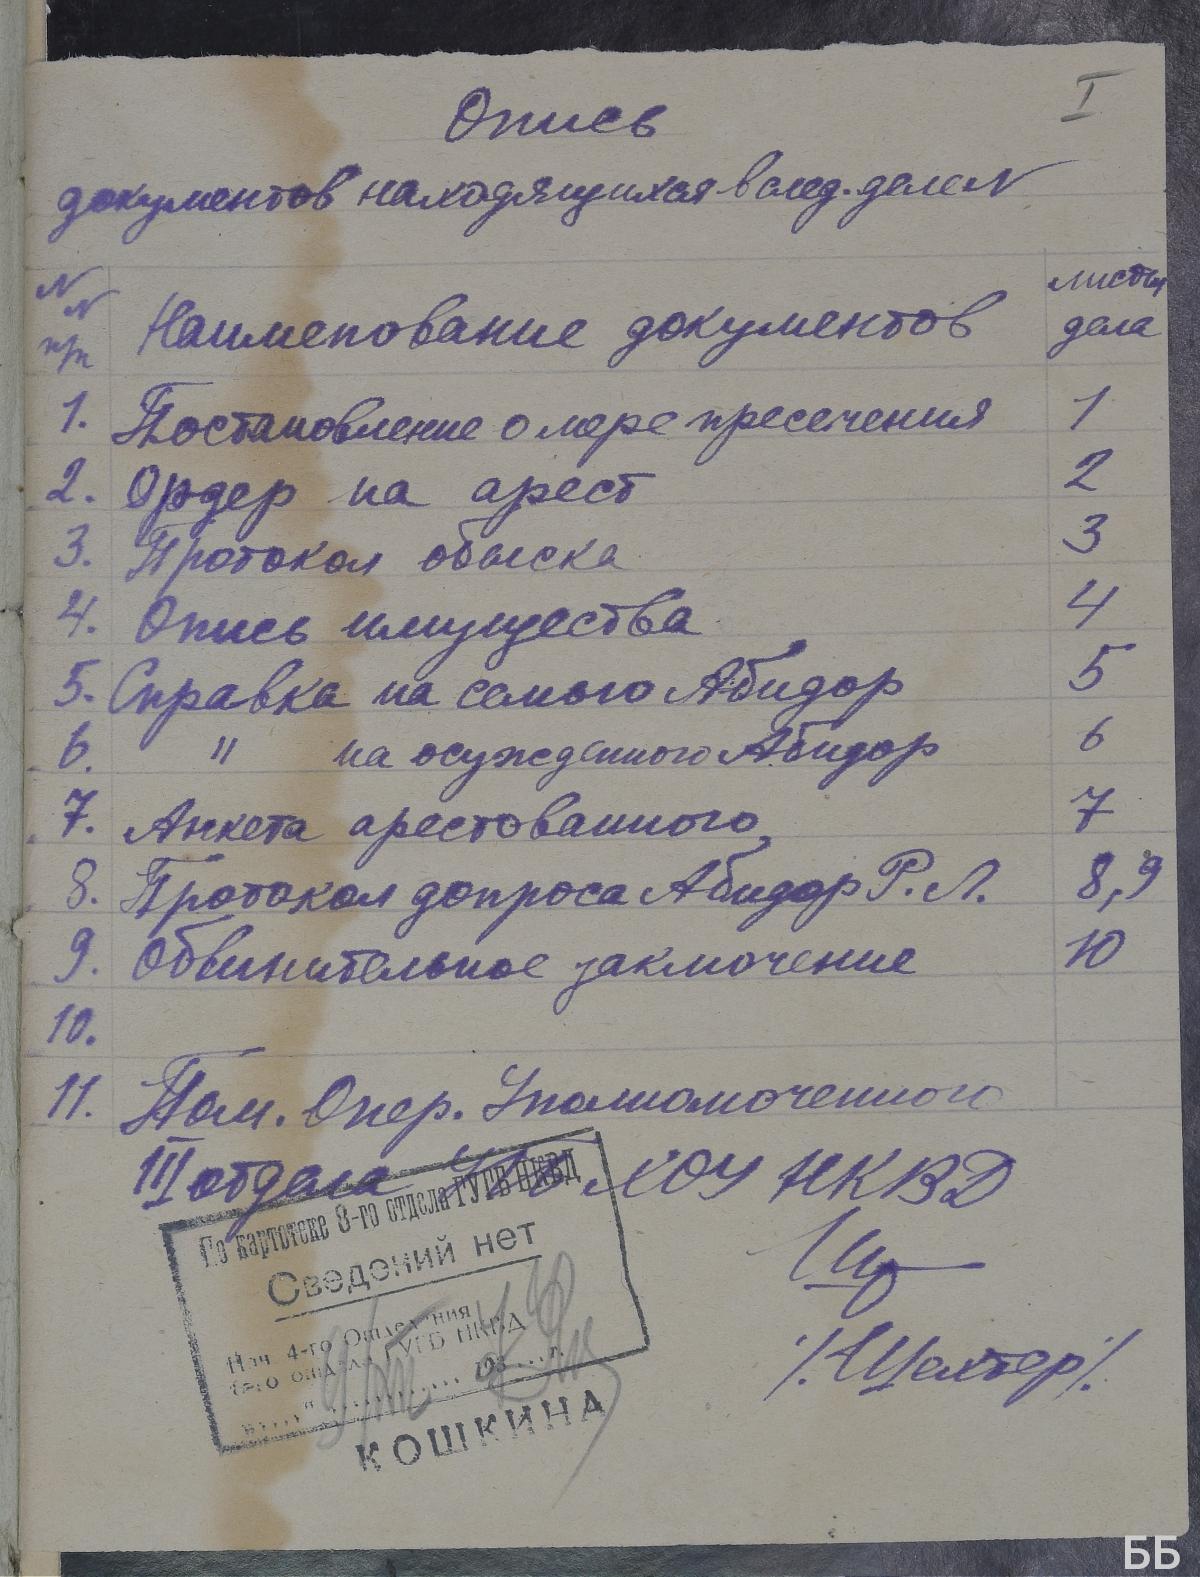 I
Опись
документов находящихся в след. деле N
N N п/п Наименование документов листы дела
1. Постановление о мере пресечения 1
2. Ордер на арест 2
3. Протокол обыска 3
4. Опись имущества 4
5. Справка на самого Абидор 5
6. " на осужденного Абидор 6
7. Анкета арестованного 7
8. Протокол допроса Абидор Р. Л. 8,9
9. Обвинительное заключение 10
10.
11. Пом. Опер. Уполномоченного
III отдела УГБ ХОУ НКВД
/Шехтер/.
По картотеке 8-го отдела ГУГБ НКВД
Сведений нет
Нач. 4-го Отделения
8-го отдела ГУГБ НКВД
"....." ............ 193....г.
КОШКИНА
ББ